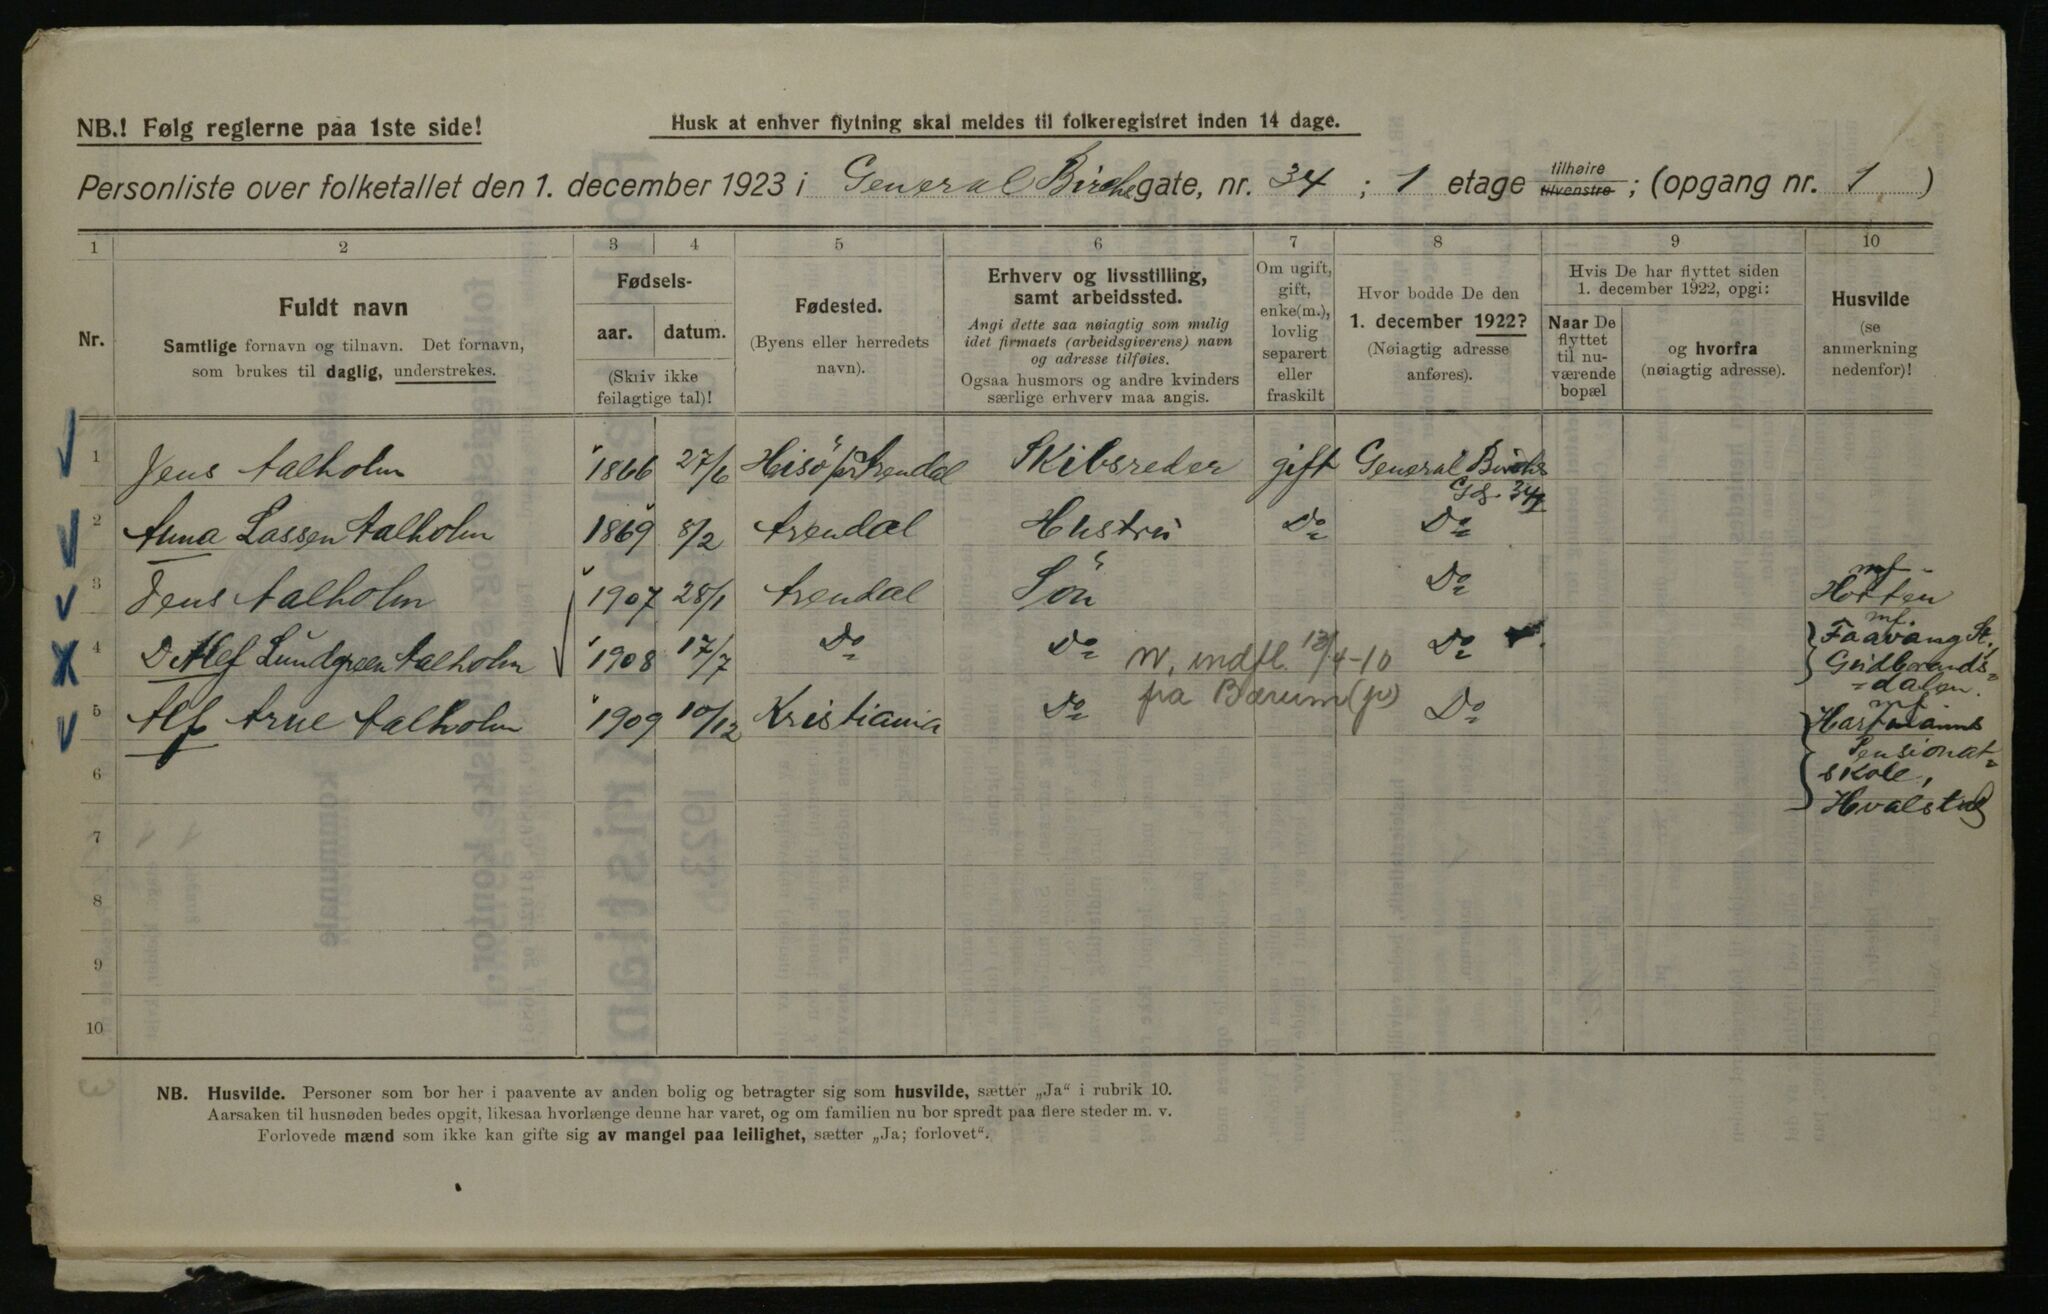 NB.! Følg reglerne paa 1ste side!
Husk at enhver flytning skal meldes til folkeregistret inden 14 dage.
Personliste over folketallet den 1. december 1923 i General Birchsgate, nr. 34 ; 1 etage tilhøire tilvenstre ; (opgang nr. 1 )
1 2 3 4 5 6 7 8 9 10
Nr.
Fuldt navn
Samtlige fornavn og tilnavn. Det fornavn,
som brukes til daglig, understrekes.
Fødsels-
aar. datum.
(Skriv ikke
feilagtige tal)!
Fødested.
(Byens eller herredets
navn).
Erhverv og livsstilling,
samt arbeidssted.
Angi dette saa nøiagtig som mulig
idet firmaets (arbeidsgiverens) navn
og adresse tilføies.
Ogsaa husmors og andre kvinders
særlige erhverv maa angis.
Om ugift,
gift,
enke(m.),
lovlig
separert
eller
fraskilt
Hvor bodde De den
1. december 1922?
(Nøiagtig adresse
anføres).
Hvis De har flyttet siden
1. december 1922, opgi:
Naar De
flyttet
til nu-
værende
bopæl
og hvorfra
(nøiagtig adresse).
Husvilde
(se
anmerkning
nedenfor)!
1 Jens Aalholm 1866 27/6 Hisö pr Arendal Skibsreder gift General Birchs
Gd. 34
2 Anna Lassen Aalholm 1869 8/2 Arendal Hustru Do Do
3 Jens Aalholm 1907 28/1 Arendal Sön Do mf Horten
4 Ditlef Lundgreen Aalholm 1908 17/7 Do Do Do mf. Faavang St.
Gudbrands-
dalen.
n. indfl. 13/4-10
fra Bærum (p)
5 Alf Arne Aalholm 1909 10/12 Kristiania Do Do mf Hartmanns
Pensionat-
skole,
Hvalstad
6
7
8
9
10
NB. Husvilde. Personer som bor her i paavente av anden bolig og betragter sig som husvilde, sætter „Ja“ i rubrik 10.
Aarsaken til husnøden bedes opgit, likesaa hvorlænge denne har varet, og om familien nu bor spredt paa flere steder m. v.
Forlovede mænd som ikke kan gifte sig av mangel paa leilighet, sætter „Ja; forlovet“.